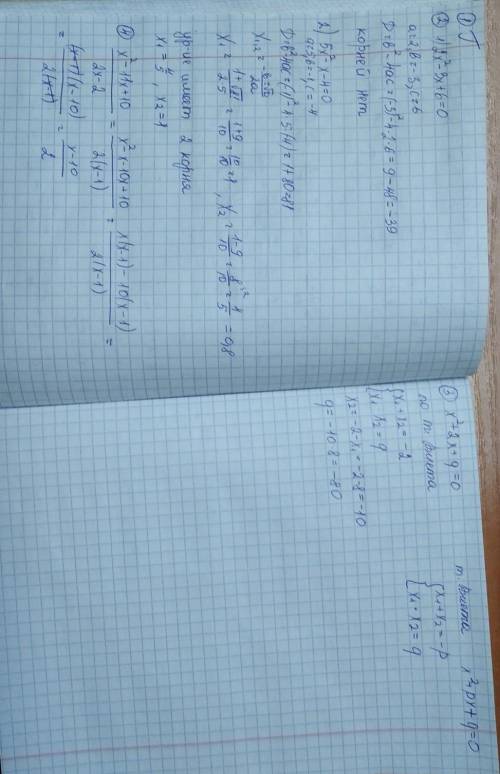 ① Г
② 1) 2x²-3x+6=0
a=2, b=-3, c=6
D=b²-4ac=(-3)²-4·2·6=9-48=-39
корней нет
2) 5x²-x-4=0
a=5, b=-1, c=-4
D=b²-4ac=(-1)²-4·5·(-4)=1+80=81
x₁,₂=(-b±√D)/2a
x₁=(1+√81)/(2·5)=(1+9)/10=10/10=1, x₂=(1-9)/10=8/10=4/5=0,8
ур-ие имеет 2 корня
x₁=4/5, x₂=1
④ (x²-11x+10)/(2x-2)=(x²-x-10x+10)/(2(x-1))=(x(x-1)-10(x-1))/(2(x-1))=
=((x-1)(x-10))/(2(x-1))=(x-10)/2
③ x²+2x+q=0
по т. Виета
{x₁+x₂=-2
{x₁·x₂=q
x₂=-2-x₁=-2-8=-10
q=-10·8=-80
т. Виета x²+px+q=0
{x₁+x₂=-p
{x₁·x₂=q